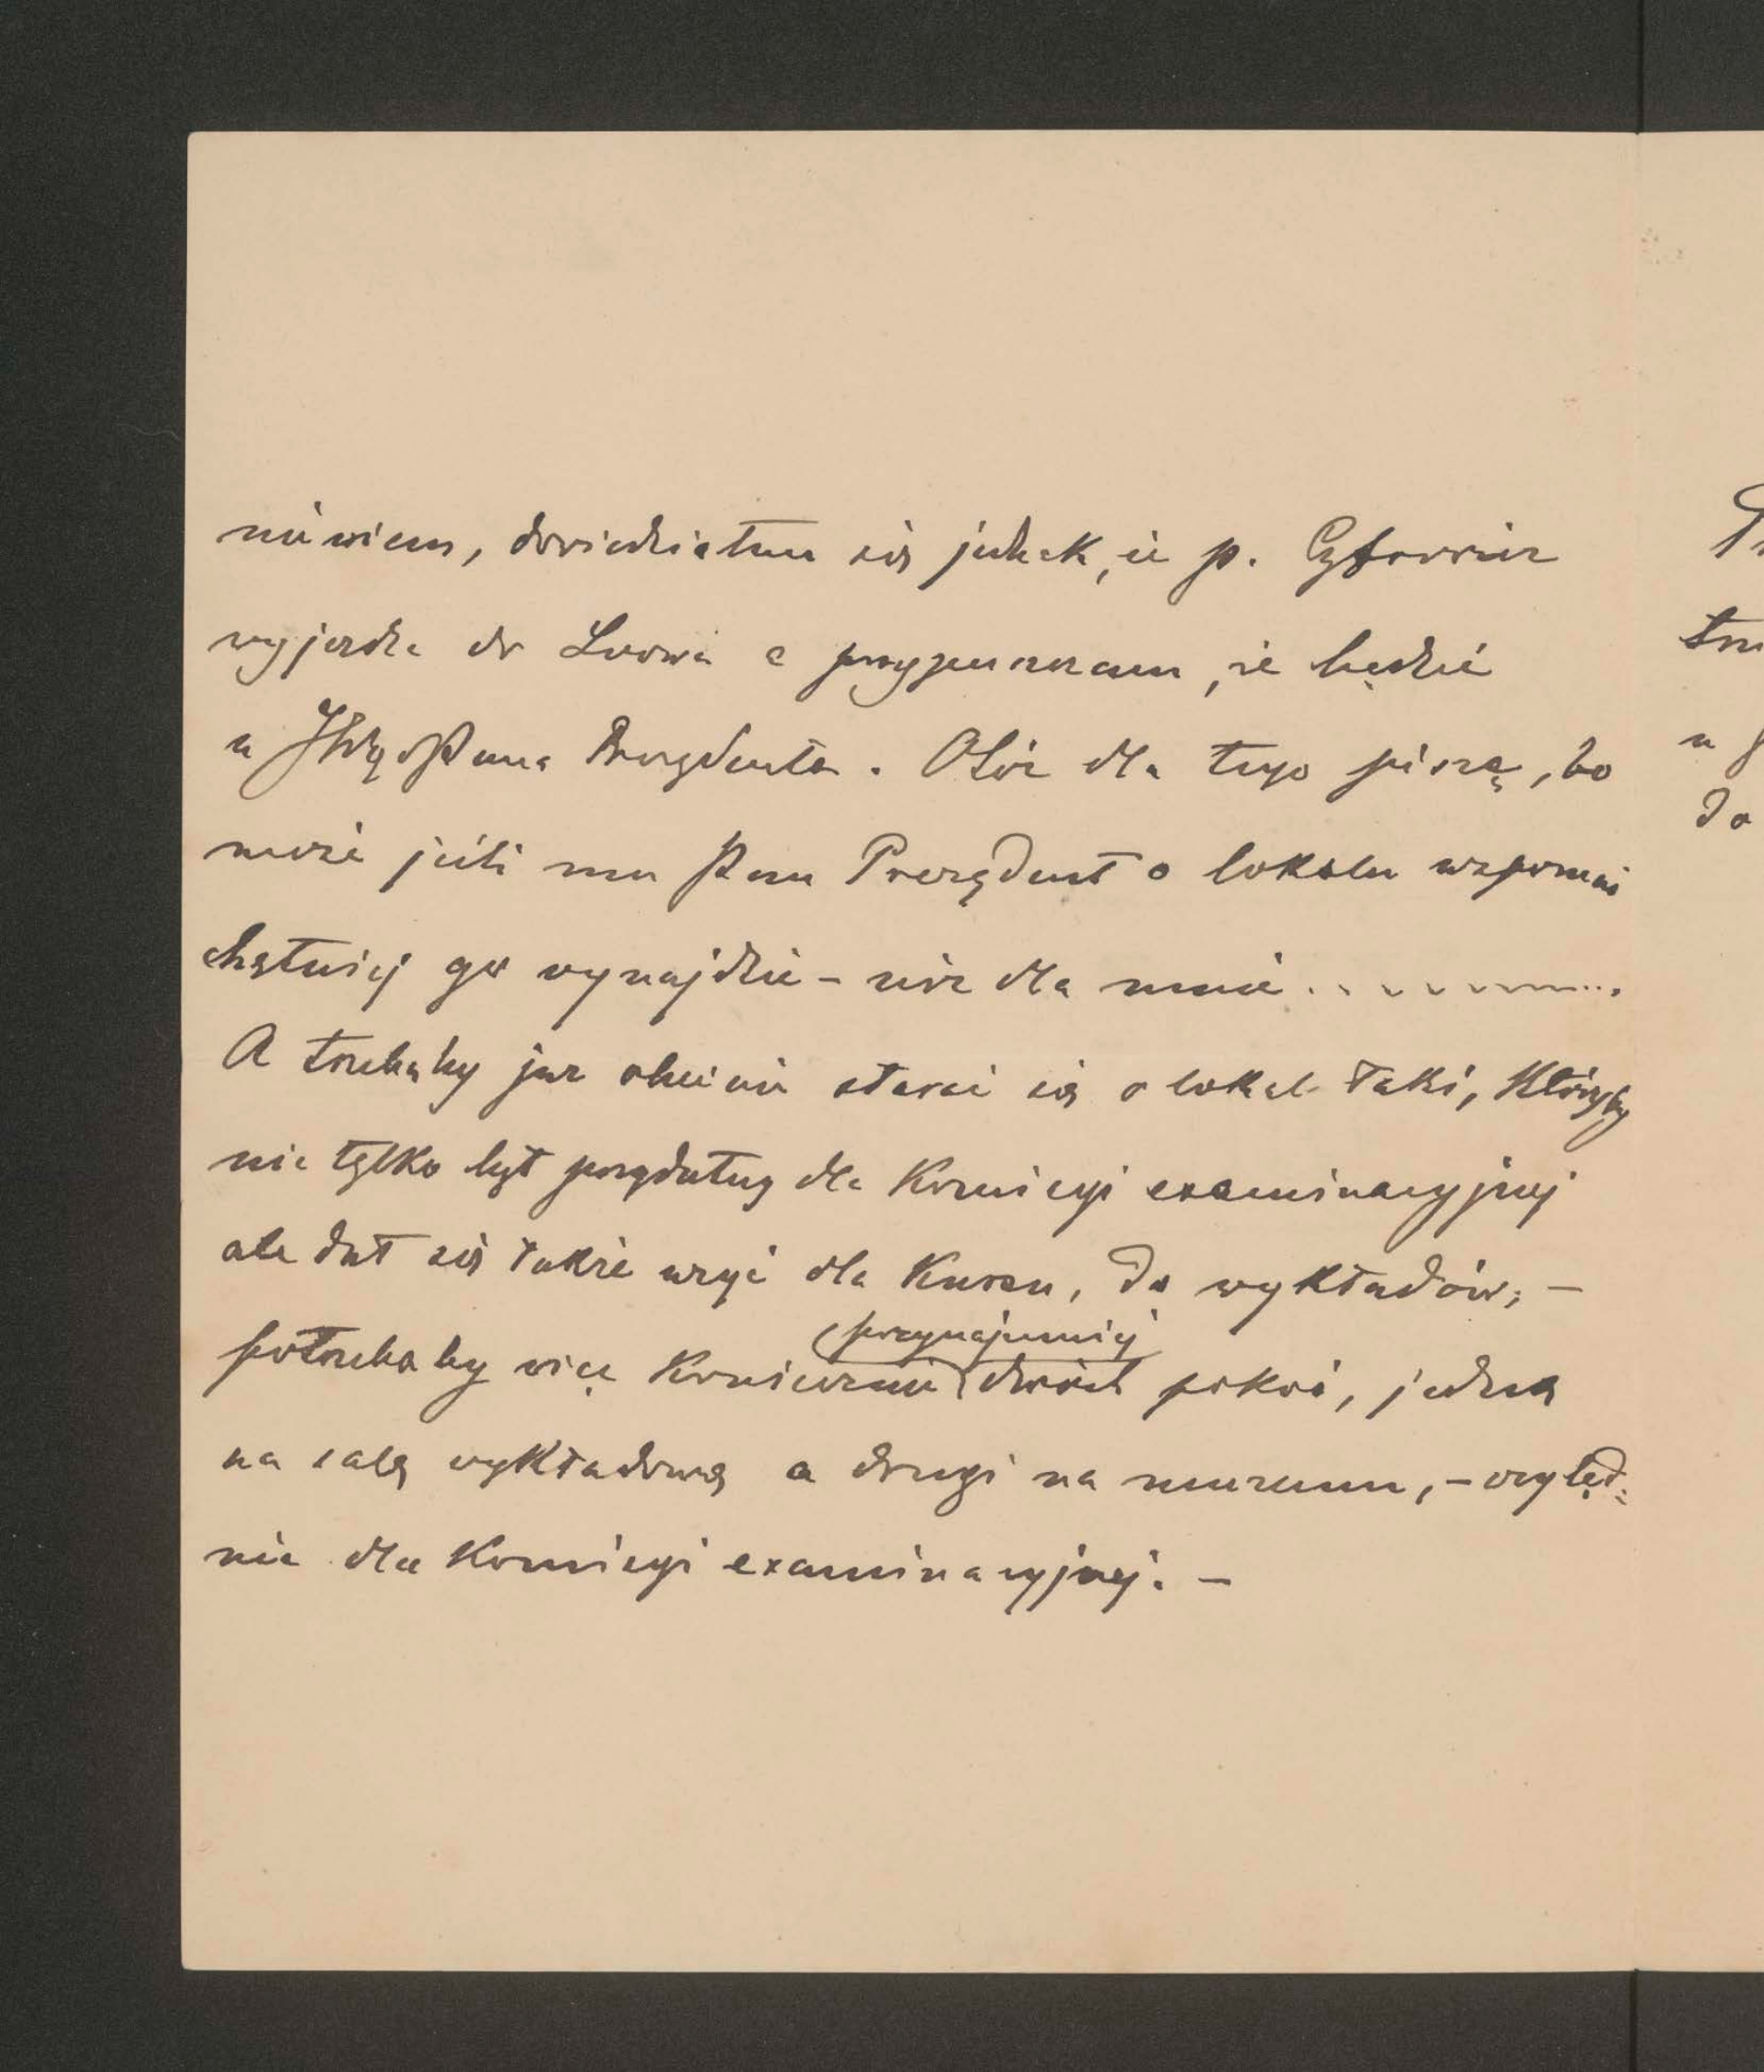 nie wiem, dowiedziałem się jednak, że p.
wyjeżdża do Lwowa a przypuszczam, że będzie
u Pana Prezydenta. Otóż dla tego piszę, bo
może jeśli mu Pan Prezydent o lokalu wspomni
chętniej go wynajdzie – niż dla mnie . . . . . . . . .
A trzebaby już obecnie starać się o lokal taki, któryby
nie tylko był przydatny dla Komisyi examinacyjnej
ale dał się także użyć dla Kursu, do wykładów, –
potrzebaby więc koniecznie (przynajmniej) dwóch pokoi, jeden
na salę wykładową a drugi na muzeum, – względ=
nie dla Komisyi examinacyjnej. –